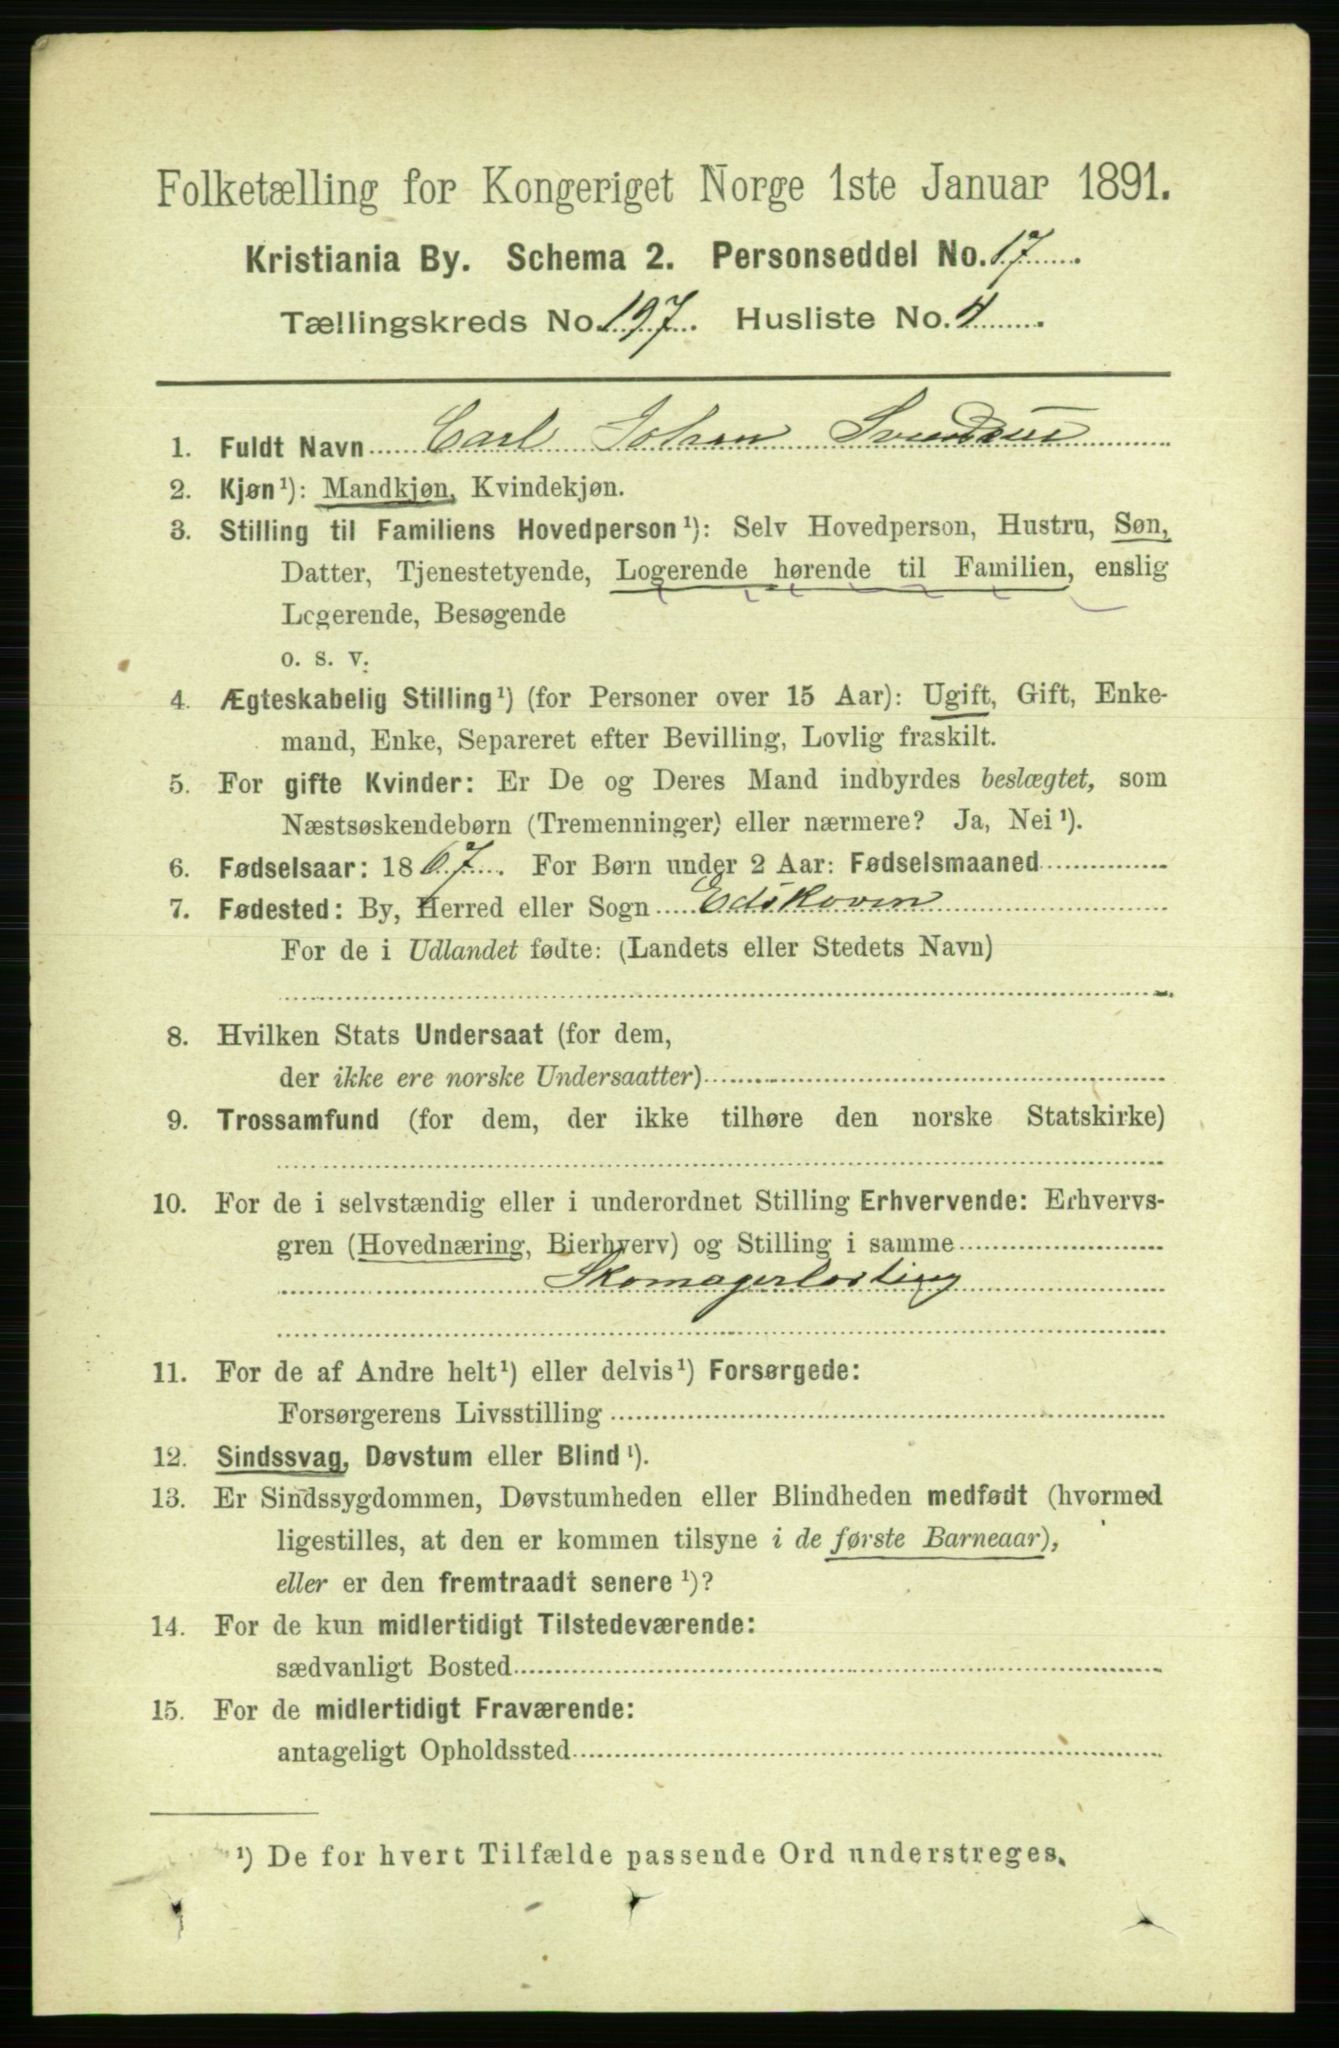 Folketælling for Kongeriget Norge 1ste Januar 1891.
Kristiania By. Schema 2. Personseddel No. 17
Tællingskreds No. 197. Husliste No. 4
1. Fuldt Navn Carl Johan
2. Kjøn¹): Mandkjøn, Kvindekjøn.
3. Stilling til Familiens Hovedperson¹): Selv Hovedperson, Hustru, Søn,
Datter, Tjenestetyende, Logerende hørende til Familien, enslig
Logerende, Besøgende
o. s. v.
4. Ægteskabelig Stilling¹) (for Personer over 15 Aar): Ugift, Gift, Enke-
mand, Enke, Separeret efter Bevilling, Lovlig fraskilt.
5. For gifte Kvinder: Er De og Deres Mand indbyrdes beslægtet, som
Næstsøskendebørn (Tremenninger) eller nærmere? Ja, Nei¹).
6. Fødselsaar: 1867. For Børn under 2 Aar: Fødselsmaaned
7. Fødested: By, Herred eller Sogn Edskoven
For de i Udlandet fødte: (Landets eller Stedets Navn)
8. Hvilken Stats Undersaat (for dem,
der ikke ere norske Undersaatter)
9. Trossamfund (for dem, der ikke tilhøre den norske Statskirke)
10. For de i selvstændig eller i underordnet Stilling Erhvervende: Erhvervs-
gren (Hovednæring, Bierhverv) og Stilling i samme
11. For de af Andre helt¹) eller delvis¹) Forsørgede:
Forsørgerens Livsstilling
12. Sindssvag, Døvstum eller Blind¹).
13. Er Sindssygdommen, Døvstumheden eller Blindheden medfødt (hvormed
ligestilles, at den er kommen tilsyne i de første Barneaar),
eller er den fremtraadt senere¹)?
14. For de kun midlertidigt Tilstedeværende:
sædvanligt Bosted
15. For de midlertidigt Fraværende:
antageligt Opholdssted
¹) De for hvert Tilfælde passende Ord understreges.